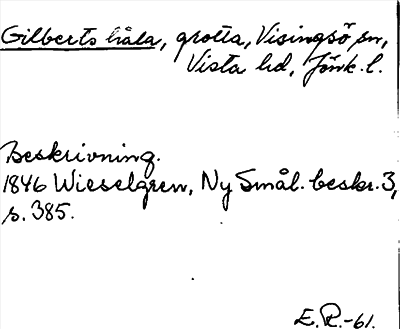 Gilberts håla, grotta, Visingsö sn,
Vista hd, Jönk. l.
Beskrivning.
1846 Wieselgren, Ny Smål. beskr. 3,
s. 385.
E.R.-61.